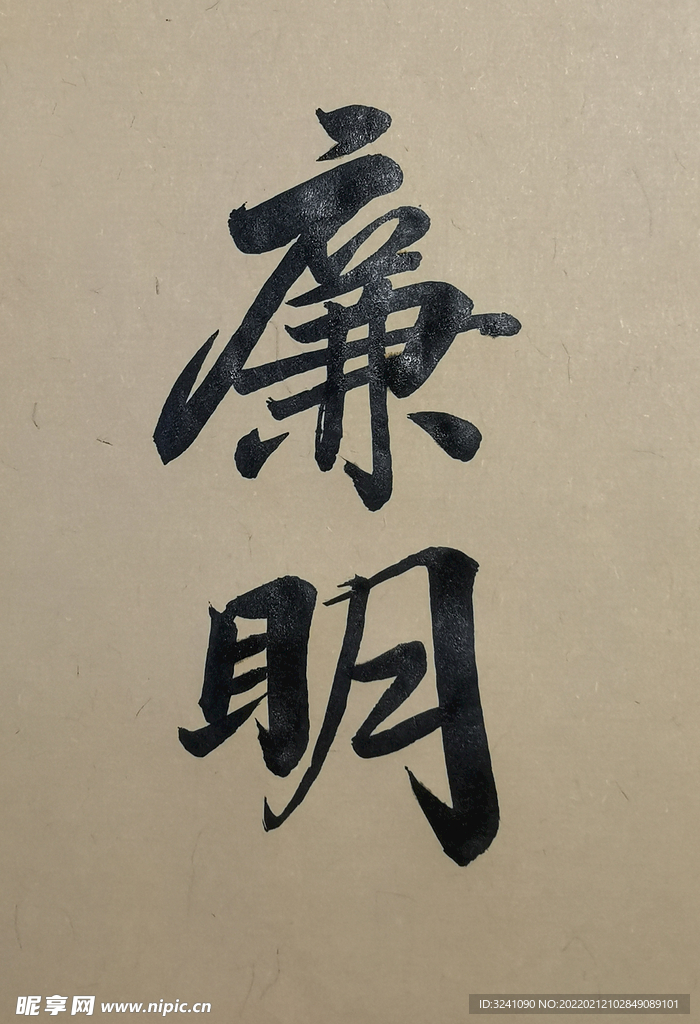 廉
明
昵享网 www.nipic.cn
ID:3241090 NO:20220212102849089101